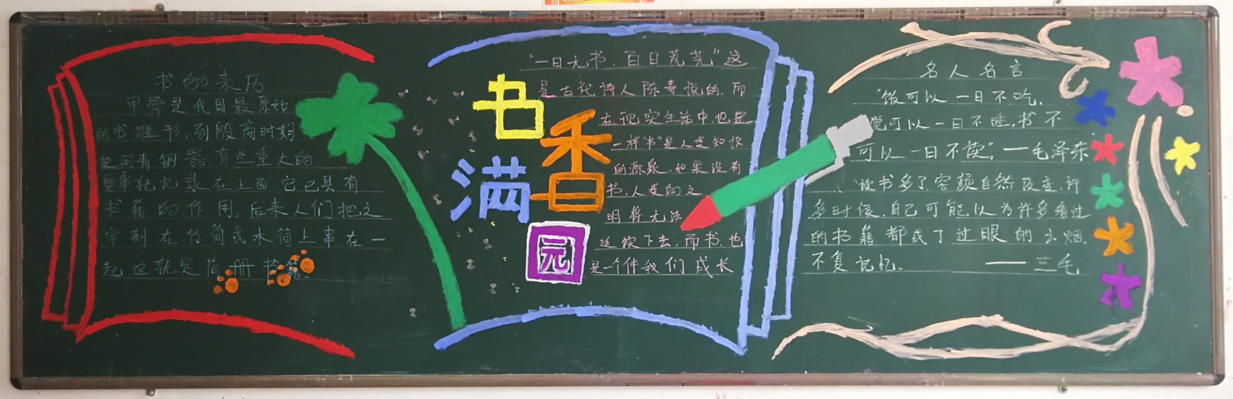 书的来历
甲骨是我国最原始
的书雏形,到殷商时期
使用青铜器,有些重大的
事札记录在上面,它已具有
书籍的作用,后来人们把文
字刻在竹简或木简上串在一
起,这就是简册书籍。
书香满园
“一日无书,百日荒芜”这
是古代诗人陈寿说的,而
在现实生活中也是
一样书”是人类知识
的源泉,如果没有
书,人类的文
明将无法
延续下去,而书,也
是一个伴我们成长
名人名言
“饭可以一日不吃,
觉可以一日不睡,书不
可以一日不读”。—毛泽东
“读书多了,容颜自然改变,许
多时候,自己可能以为许多看过
的书籍都成了过眼的云烟,
不复记忆。——三毛